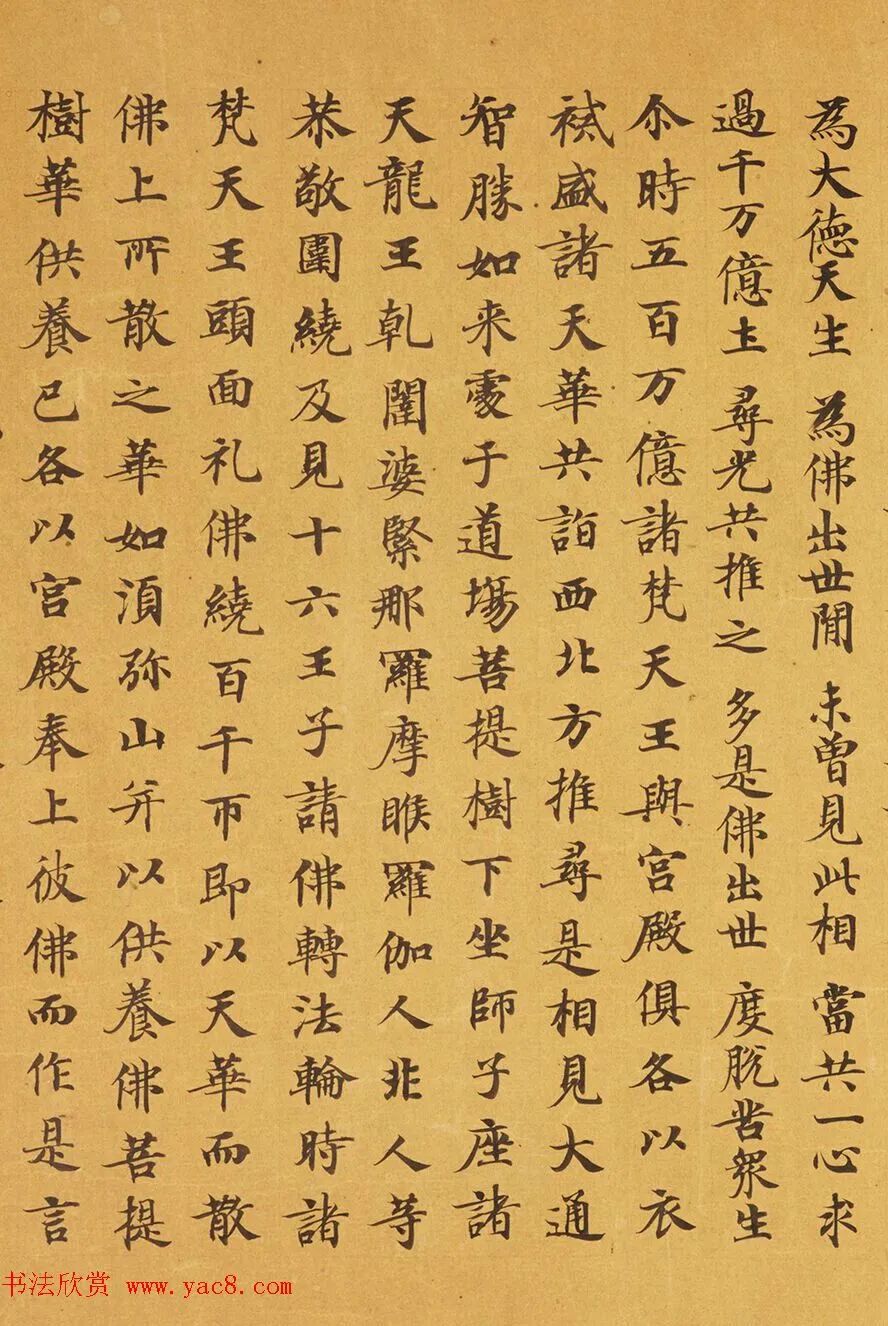 為大德天生 為佛出世閒 未曾見此相 當共一心求
過千万億土 尋光共推之 多是佛出世 度脫苦衆生
尒時五百万億諸梵天王與宮殿俱各以衣
祴盛諸天華共詣西北方推尋是相見大通
智勝如来處于道場菩提樹下坐師子座諸
天龍王乹闥婆緊那羅摩睺羅伽人非人等
恭敬圍繞及見十六王子請佛轉法輪時諸
梵天王頭面礼佛繞百千帀即以天華而散
佛上所散之華如湏弥山并以供養佛菩提
樹華供養已各以宮殿奉上彼佛而作是言
书法欣赏 www.yac8.com